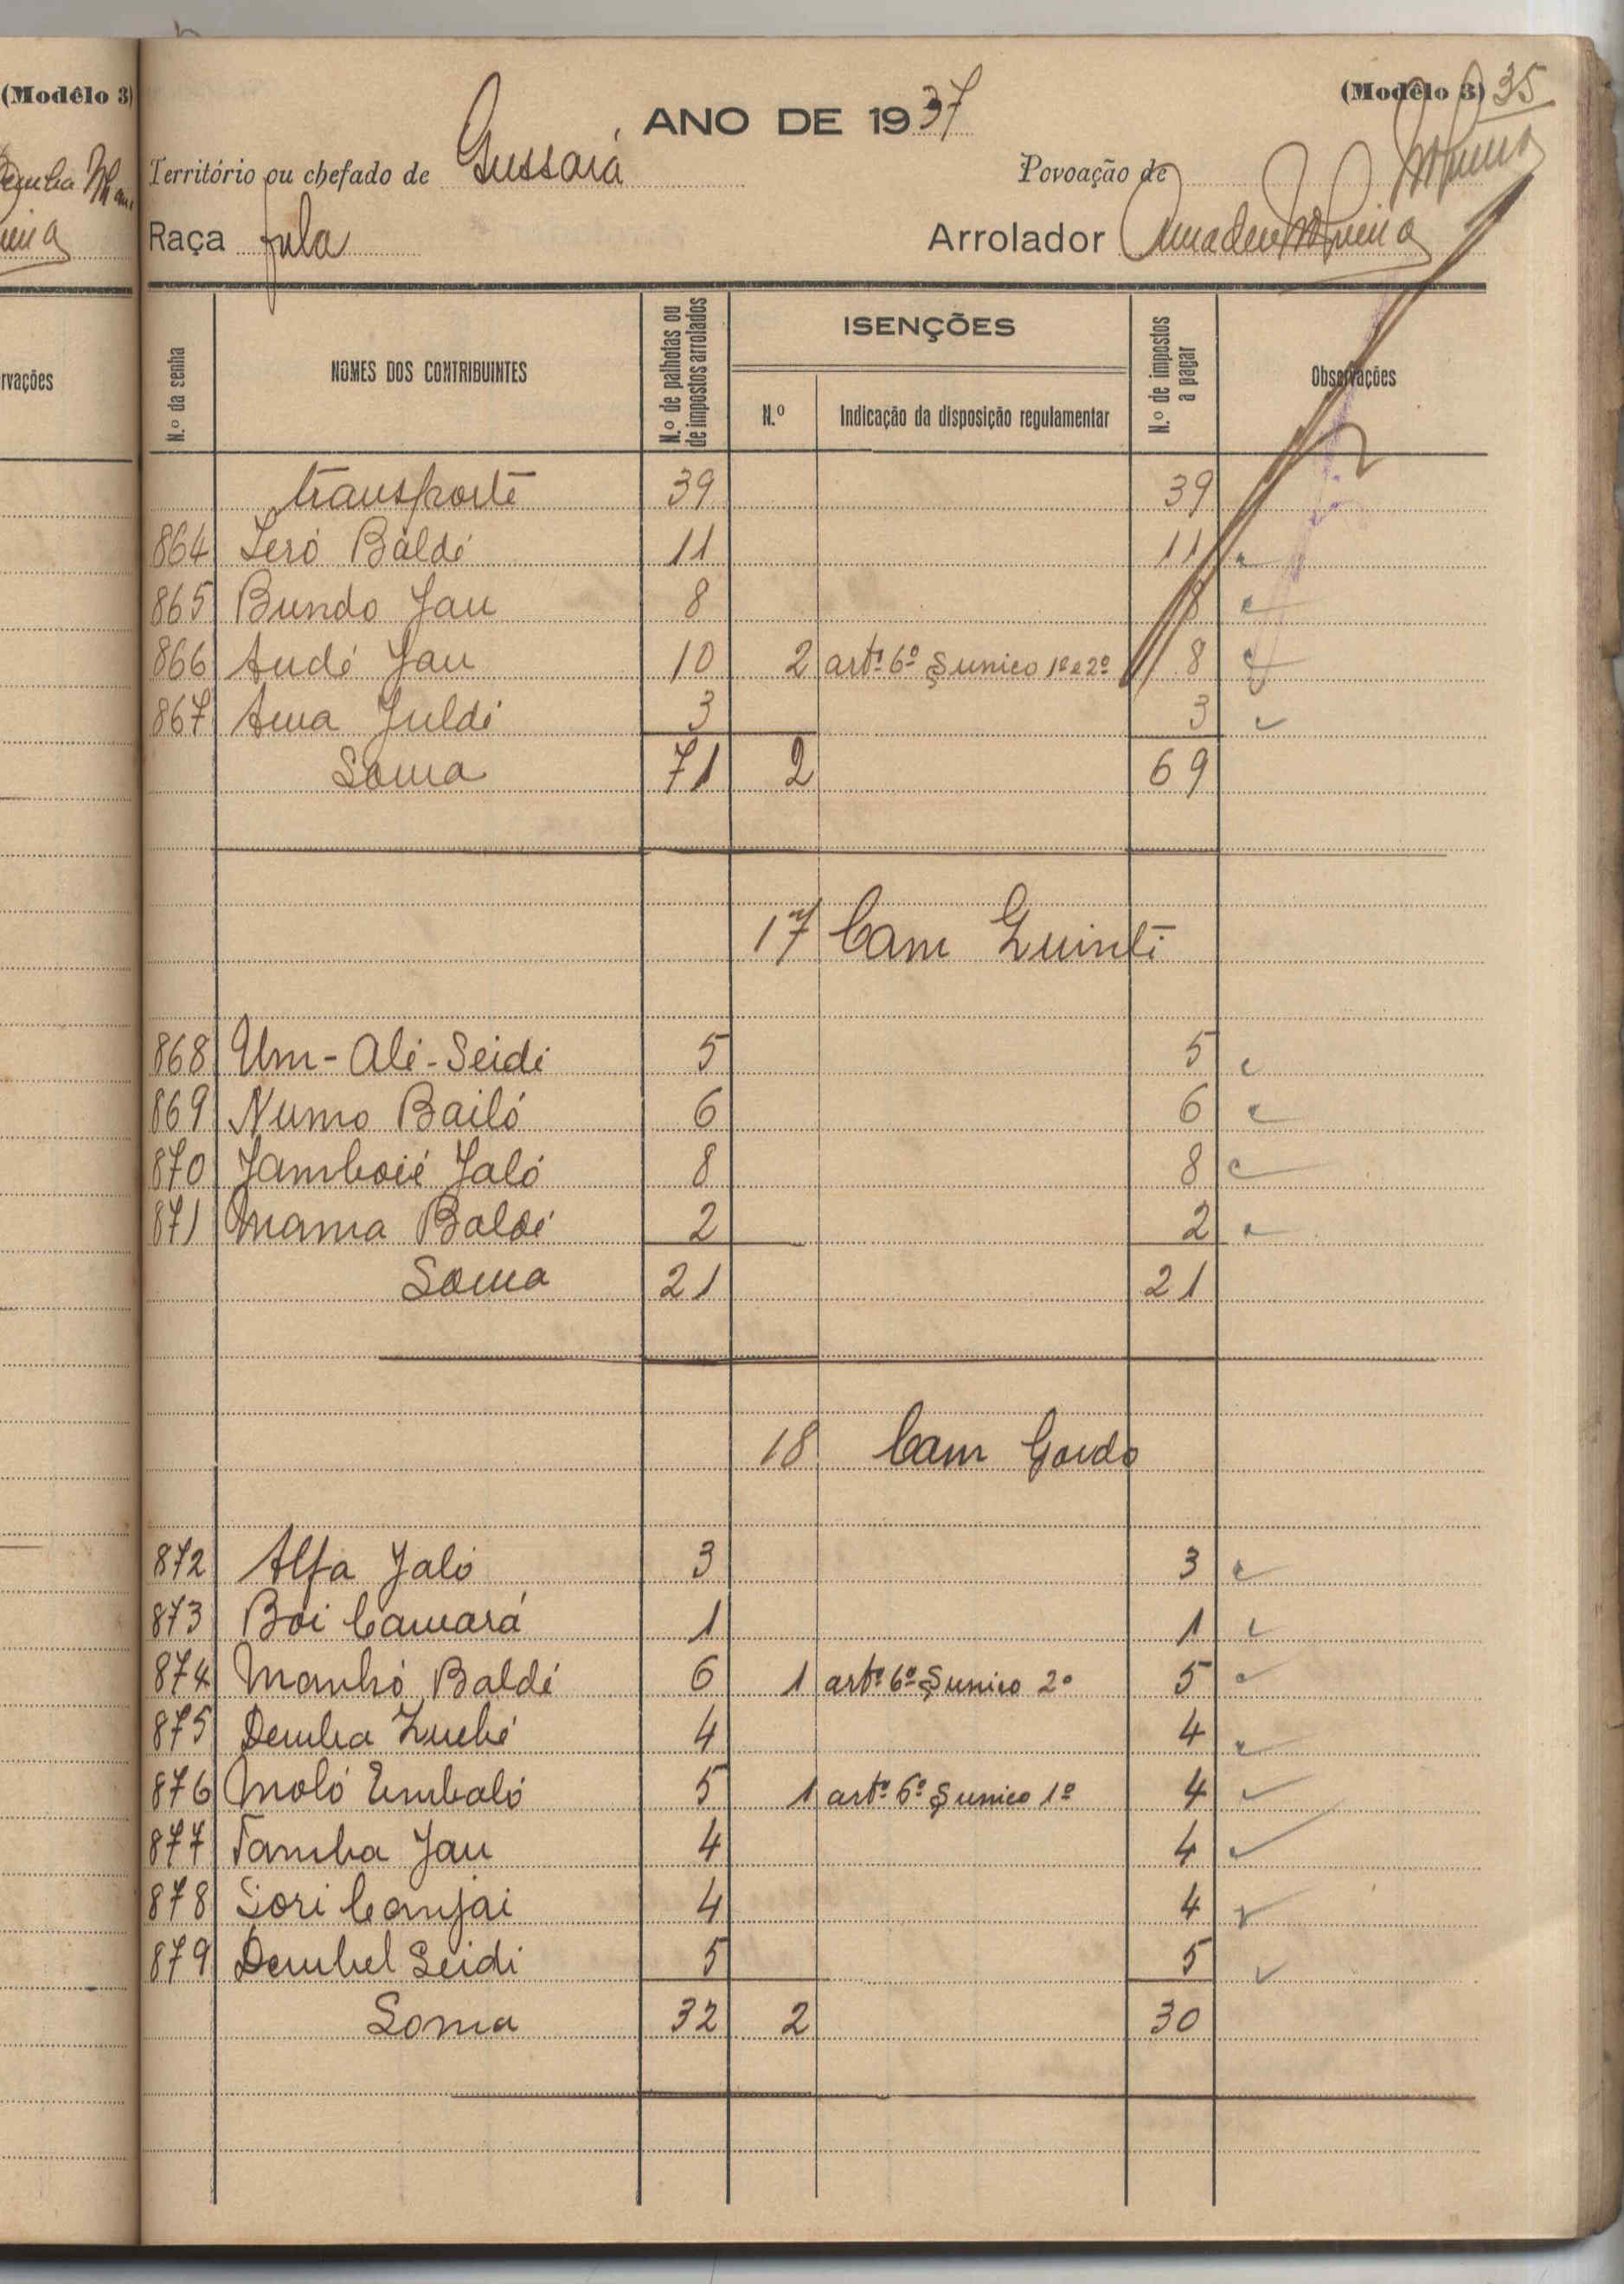 (Modêlo 3)
(Modêlo 3) 35
ANO DE 1937
Território ou chefado de Gussará
Povoação de
Raça fula
Arrolador Amadeu
rvações
N.º da senha
NOMES DOS CONTRIBUINTES
N.º de palhotas ou de impostos arrolados
ISENÇÕES
N.º
Indicação da disposição regulamentar
N.º de impostos a pagar
Observações
transporte 39 39
864 Seró Baldé 11 11
865 Bundo Jau 8 8
866 Audé Jau 10 2 artº 6º § unico 1º e 2º 8
867 Ama Juldé 3 3
Soma 71 2 69
17 Cam Quinti
868 Um-Alé-Seidi 5 5
869 Numo Bailó 6 6
870 Jamboié Jaló 8 8
871 Mama Baldé 2 2
Soma 21 21
18 Cam Gordo
872 Alfa Jaló 3 3
873 Boi Camará 1 1
874 Manhó Baldé 6 1 artº 6º § unico 2º 5
875 Demba 4 4
876 Moló Embaló 5 1 artº 6º § unico 1º 4
877 Tamba Jau 4 4
878 Sori Canjai 4 4
879 Dembel Seidi 5 5
Soma 32 2 30